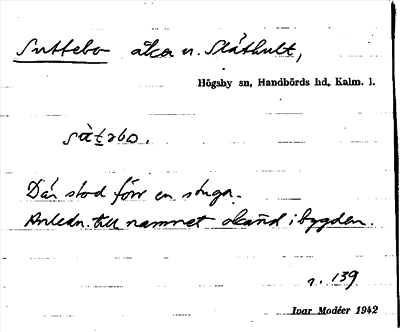 Suttebo åker n. Slåthult,
Högsby sn, Handbörds hd, Kalm. l.
Där stod förr en stuga.
Anledn. till namnet okänd i bygden.
n. 139
Ivar Modéer 1942